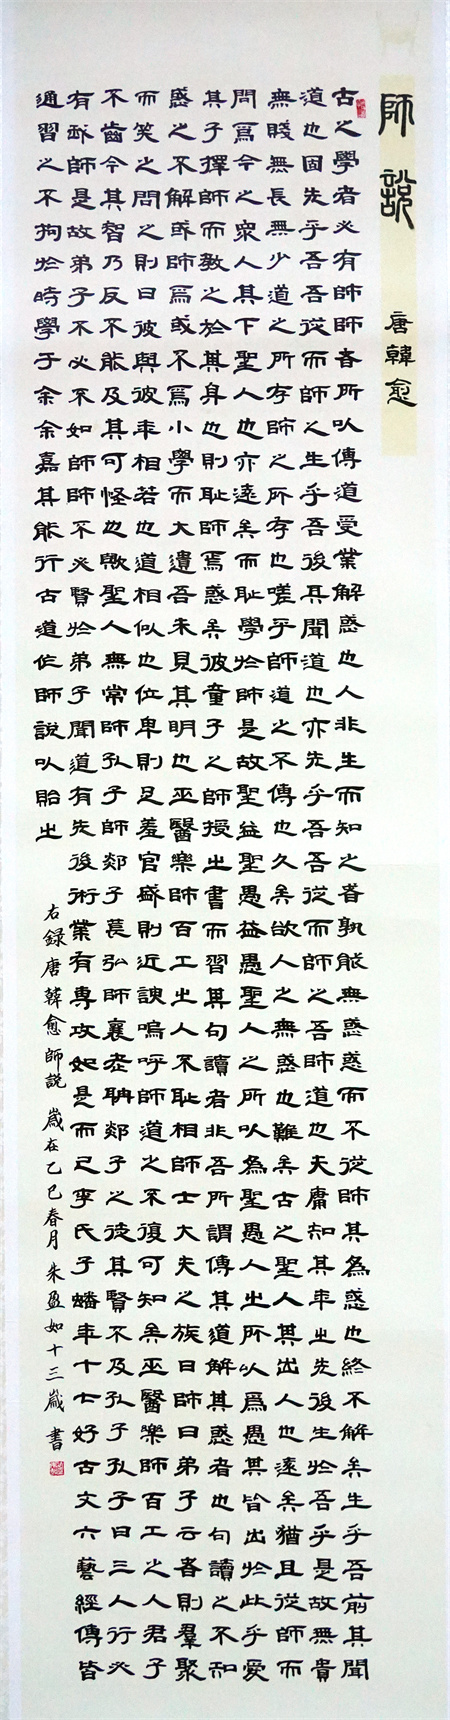 師說 唐韓愈
古之學者必有師師者所以傳道受業解惑也人非生而知之者孰能無惑惑而不從師其為惑也終不解矣生乎吾前其聞
道也固先乎吾吾從而師之生乎吾後其聞道也亦先乎吾吾從而師之吾師道也夫庸知其年之先後生於吾乎是故無貴
無賤無長無少道之所存師之所存也嗟乎師道之不傳也久矣欲人之無惑也難矣古之聖人其出人也遠矣猶且從師而
問焉今之眾人其下聖人也亦遠矣而恥學於師是故聖益聖愚益愚聖人之所以為聖愚人之所以為愚其皆出於此乎愛
其子擇師而教之於其身也則恥師焉惑矣彼童子之師授之書而習其句讀者非吾所謂傳其道解其惑者也句讀之不知
惑之不解或師焉或不焉小學而大遺吾未見其明也巫醫樂師百工之人不恥相師士大夫之族曰師曰弟子云者則羣聚
而笑之問之則曰彼與彼年相若也道相似也位卑則足羞官盛則近諛嗚呼師道之不復可知矣巫醫樂師百工之人君子
不齒今其智乃反不能及其可怪也歟聖人無常師孔子師郯子萇弘師襄老聃郯子之徒其賢不及孔子孔子曰三人行必
有我師是故弟子不必不如師師不必賢於弟子聞道有先後術業有專攻如是而已李氏子蟠年十七好古文六藝經傳皆
通習之不拘於時學于余余嘉其能行古道作師說以貽之
右録唐韓愈師説 歲在乙巳春月 朱盈如十三歲 書